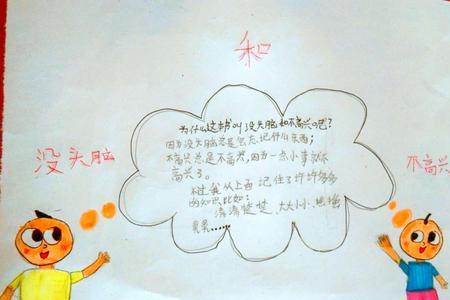 和
没头脑
不高兴
为什么这本书叫没头脑和不高兴呢？
因为没头脑总是忘记，记什么东西；
不高兴总是不高兴，因为一点小事就不
高兴了。
不过我从上面记住了许许多多
的知识比如：
清清楚楚、大大小小、